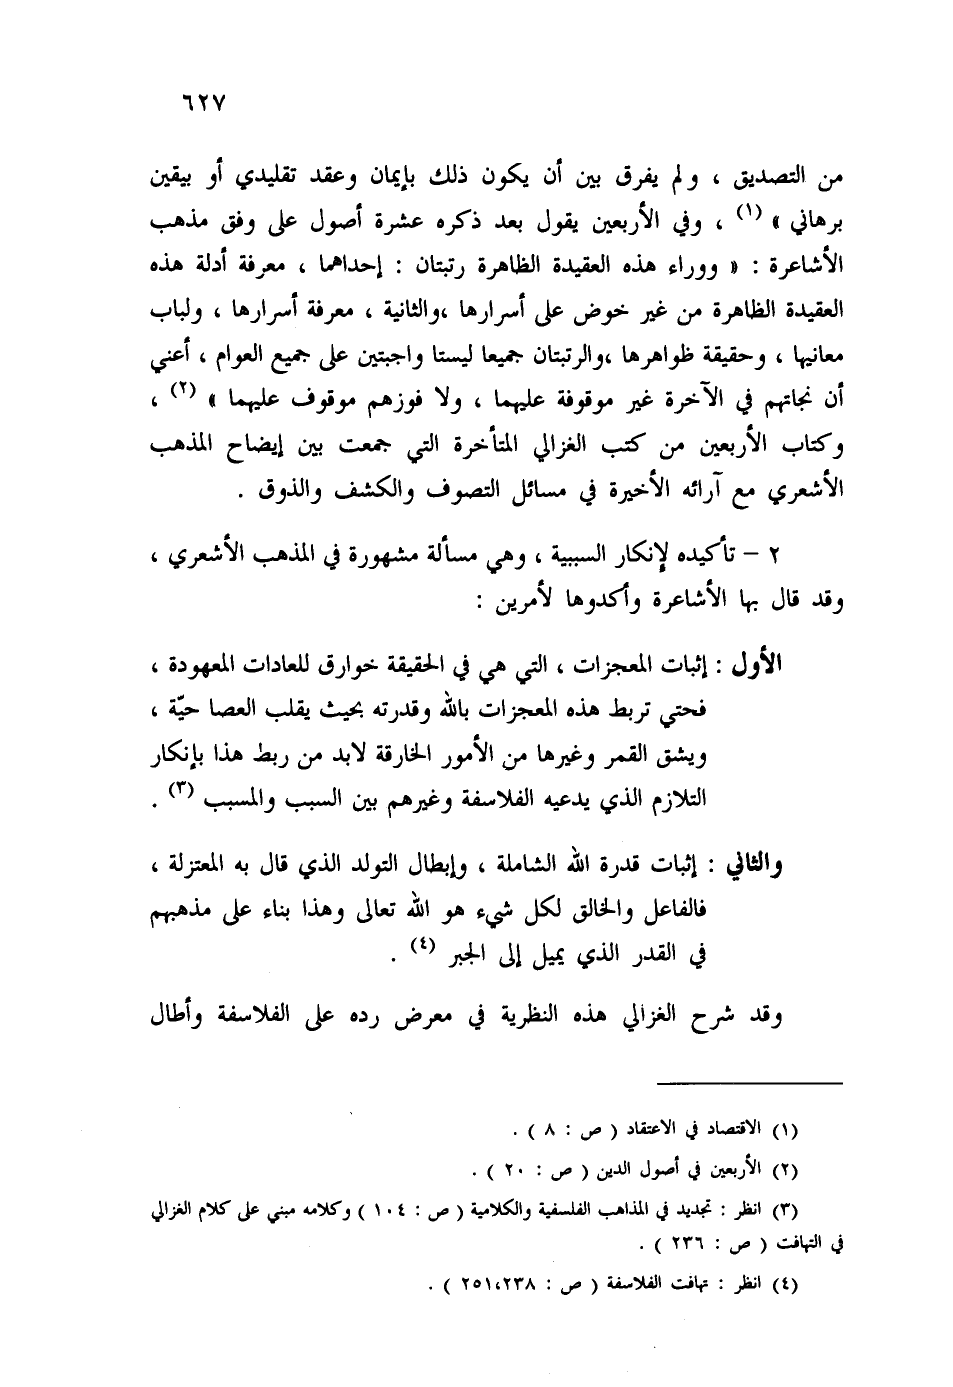 ٦٢٧
من التصديق ، ولم يفرق بين أن يكون ذلك بإيمان وعقد تقليدي أو بيقين
برهاني » (١) ، وفي الأربعين يقول بعد ذكره عشرة أصول على وفق مذهب
الأشاعرة : « ووراء هذه العقيدة الظاهرة رتبتان : إحداهما ، معرفة أدلة هذه
العقيدة الظاهرة من غير خوض على أسرارها ،والثانية ، معرفة أسرارها ، ولباب
معانيها ، وحقيقة ظواهرها ،والرتبتان جميعا ليستا واجبتين على جميع العوام ، أعني
أن نجاتهم في الآخرة غير موقوفة عليهما ، ولا فوزهم موقوف عليهما » (٢) ،
وكتاب الأربعين من كتب الغزالي المتأخرة التي جمعت بين إيضاح المذهب
الأشعري مع آرائه الأخيرة في مسائل التصوف والكشف والذوق .
٢ – تأكيده لإنكار السببية ، وهي مسألة مشهورة في المذهب الأشعري ،
وقد قال بها الأشاعرة وأكدوها لأمرين :
الأول : إثبات المعجزات ، التي هي في الحقيقة خوارق للعادات المعهودة ،
فحتي تربط هذه المعجزات بالله وقدرته بحيث يقلب العصا حيّة ،
ويشق القمر وغيرها من الأمور الخارقة لابد من ربط هذا بإنكار
التلازم الذي يدعيه الفلاسفة وغيرهم بين السبب والمسبب (٣) .
والثاني : إثبات قدرة الله الشاملة ، وإبطال التولد الذي قال به المعتزلة ،
فالفاعل والخالق لكل شيء هو الله تعالى وهذا بناء على مذهبهم
في القدر الذي يميل إلى الجبر (٤) .
وقد شرح الغزالي هذه النظرية في معرض رده على الفلاسفة وأطال
(١) الاقتصاد في الاعتقاد ( ص : ٨ ) .
(٢) الأربعين في أصول الدين ( ص : ٢٠ ) .
(٣) انظر : تجديد في المذاهب الفلسفية والكلامية ( ص : ١٠٤ ) وكلامه مبني على كلام الغزالي
في التهافت ( ص : ٢٣٦ ) .
(٤) انظر : تهافت الفلاسفة ( ص : ٢٥١،٢٣٨ ) .